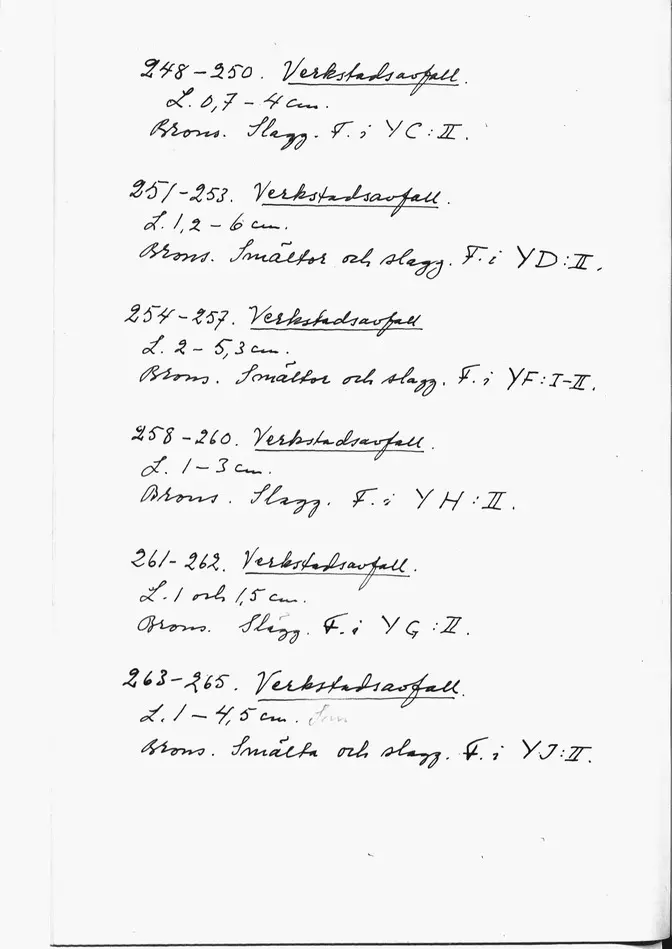 248-250. Verkstadsavfall.
L. 0,7-4 cm.
Brons. Slagg. F. i YC:II.
251-253. Verkstadsavfall.
L. 1,2-6 cm.
Brons. Smältor och slagg. F. i YD:II.
254-257. Verkstadsavfall
L. 2-5,3 cm.
Brons. Smältor och slagg. F. i YF:I-II.
258-260. Verkstadsavfall.
L. 1-3 cm.
Brons. Slagg. F. i YH:II.
261-262. Verkstadsavfall.
L. 1 och 1,5 cm.
Brons. Slagg. F. i YG:II.
263-265. Verkstadsavfall.
L. 1-4,5 cm.
Brons. Smälta och slagg. F. i YJ:II.